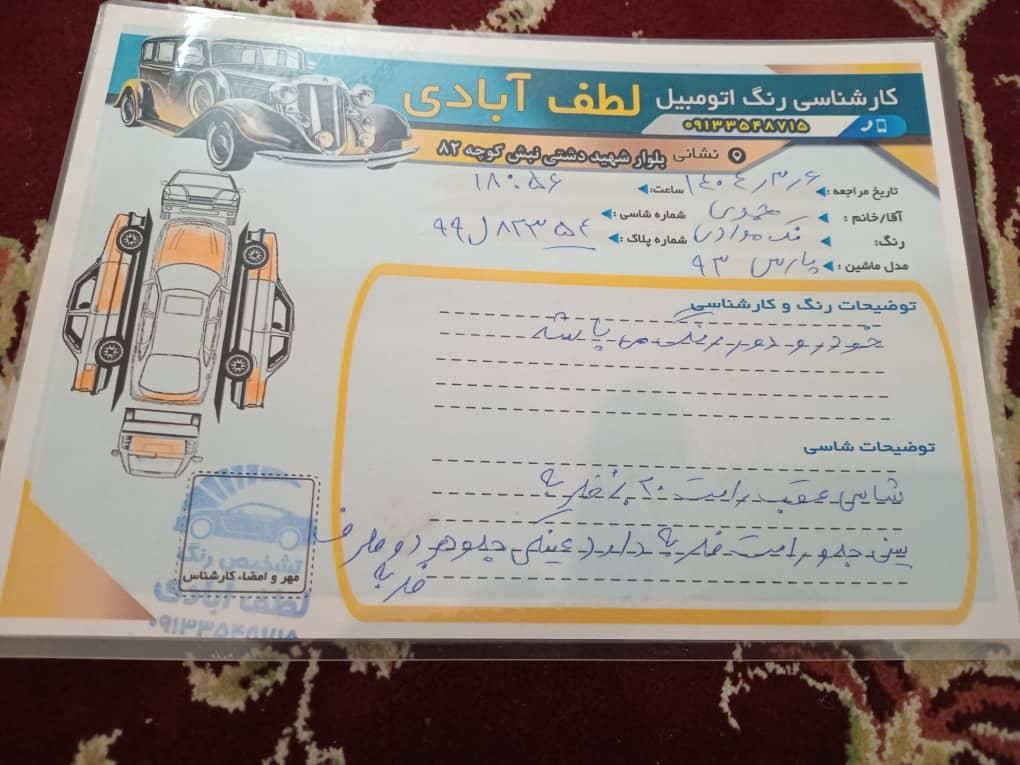 کارشناسی رنگ اتومبیل لطف آبادی
۰۹۱۳۳۵۴۸۷۱۵
نشانی بلوار شهید دشتی نبش کوچه ۸۲
تاریخ مراجعه : ۱۴۰۴/۳/۶ ساعت: ۱۸:۵۶
آقا/خانم : محمودی شماره شاسی :
رنگ: نوک مدادی شماره پلاک : ۹۹ ل ۸۲۳ ۵۴
مدل ماشین : پارس ۹۳
توضیحات رنگ و کارشناسی
خودرو دور رنگ می باشد
توضیحات شاسی
شاسی عقب راست ۲۰٪ ضربه
سینی جلو راست ضربه دارد عینکی جلو هر دو طرف
ضربه
تشخیص رنگ
مهر و امضاء کارشناس
لطف آبادی
۰۹۱۳۳۵۴۸۷۱۵